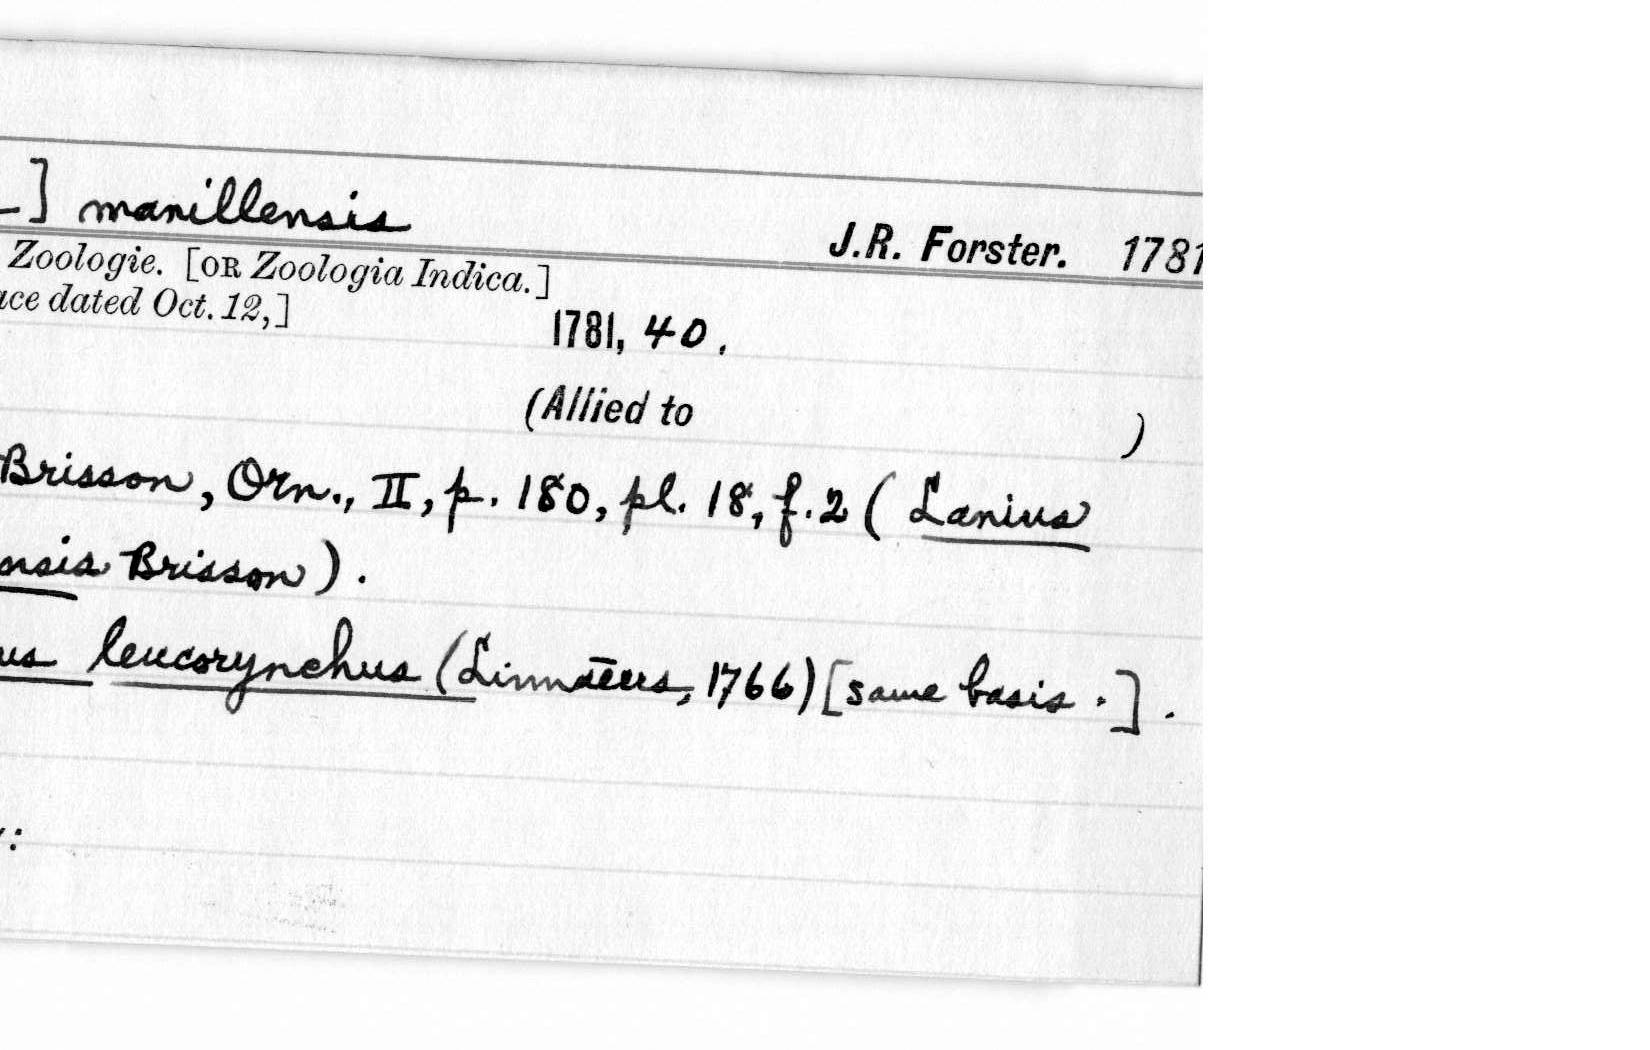 ] manillensis
J.R. Forster. 1781
Zoologie. [OR Zoologia Indica.]
ace dated Oct. 12,]
1781, 40.
(Allied to )
Brisson, Orn., II, p. 180, pl. 18, f.2 (Lanius
nsis Brisson).
us leucorynchus (Linnaeus, 1766) [same basis.].
: